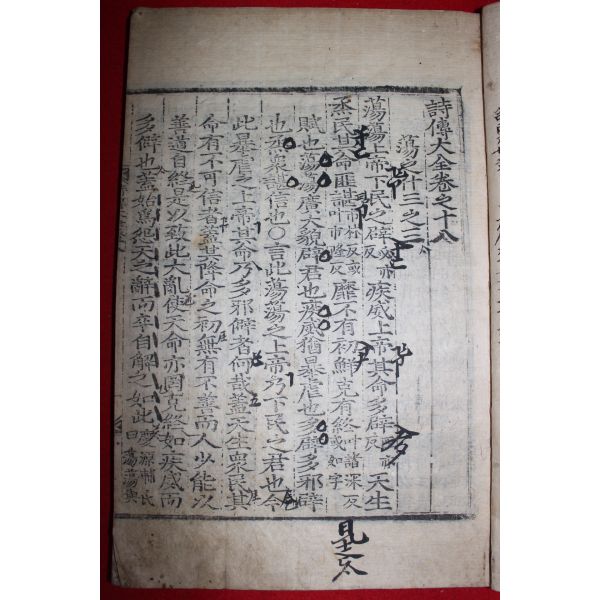 詩傳大全卷之十八
蕩之什三之三
蕩蕩上帝下民之辟疾威上帝其命多辟天生
烝民其命匪諶靡不有初鮮克有終
賦也蕩蕩廣大貌辟君也疾威猶暴虐也多辟多邪辟
也烝衆諶信也○言此蕩蕩之上帝乃下民之君也今
此暴虐之上帝其命乃多邪僻者何哉蓋天生衆民其
命有不可信者蓋其降命之初無有不善而人少能以
善道自終是以致此大亂使天命亦罔克終如疾威而
多僻也蓋始爲怨天之辭而卒自解之如此